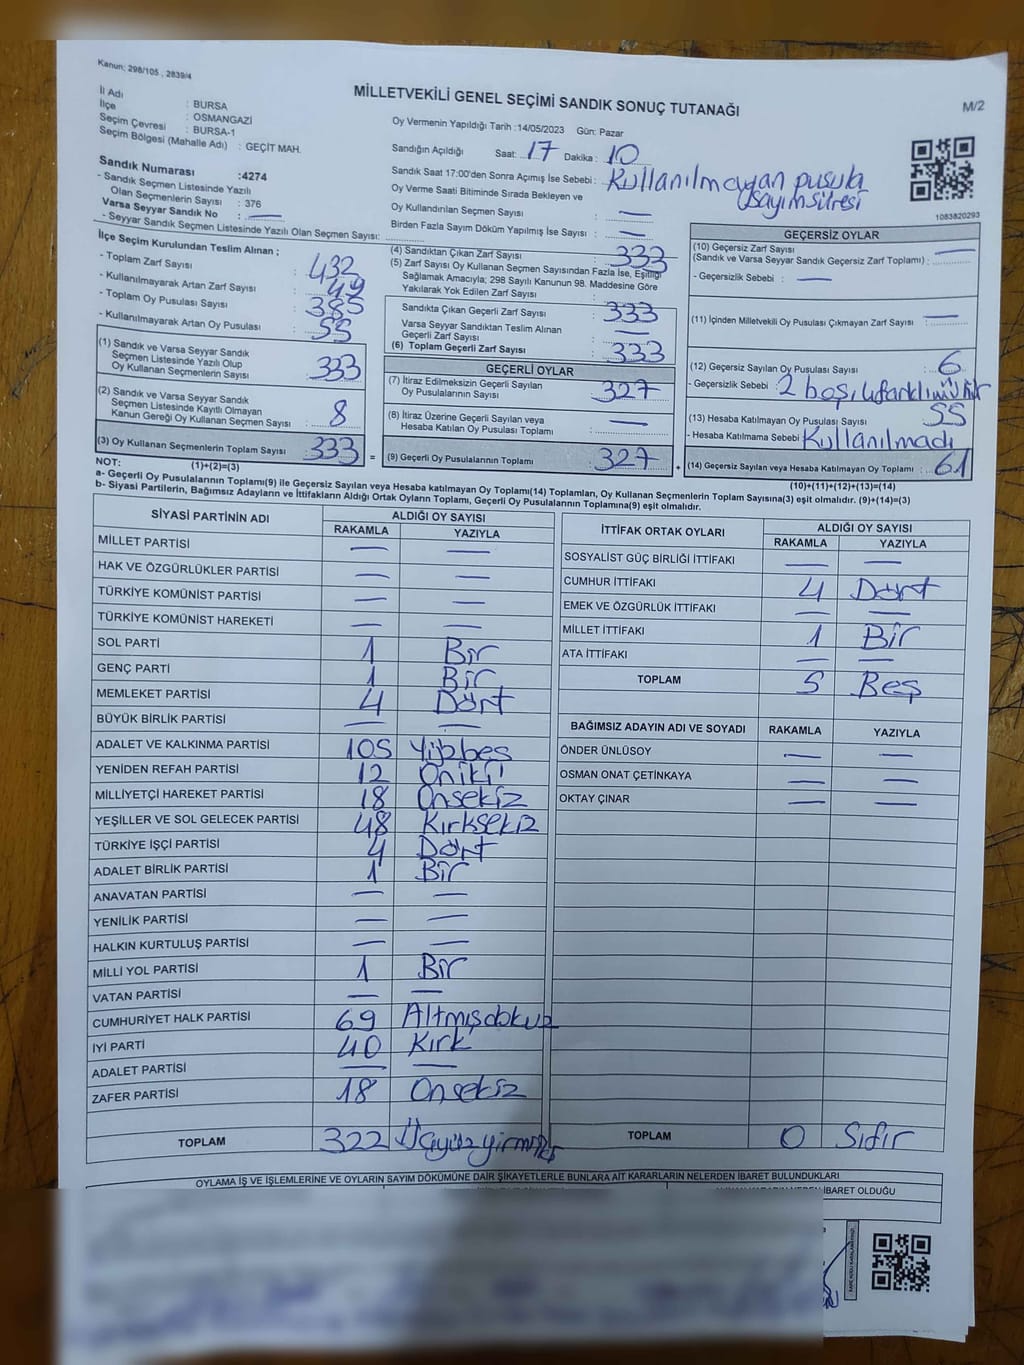 Kanun: 298/105 , 2839/4
MİLLETVEKİLİ GENEL SEÇİMİ SANDIK SONUÇ TUTANAĞI
M/2
İl Adı : BURSA
İlçe : OSMANGAZİ
Seçim Çevresi : BURSA-1
Seçim Bölgesi (Mahalle Adı) : GEÇİT MAH.
Oy Vermenin Yapıldığı Tarih :14/05/2023 Gün: Pazar
Sandığın Açıldığı Saat: 17 Dakika: 10
Sandık Saat 17:00'den Sonra Açımış İse Sebebi : Kullanılmayan pusula sayım süresi
Oy Verme Saati Bitiminde Sırada Bekleyen ve
Oy Kullandırılan Seçmen Sayısı : —
Birden Fazla Sayım Döküm Yapılmış İse Sayısı : —
1083820293
Sandık Numarası :4274
- Sandık Seçmen Listesinde Yazılı
Olan Seçmenlerin Sayısı : 376
Varsa Seyyar Sandık No : —
- Seyyar Sandık Seçmen Listesinde Yazılı Olan Seçmen Sayısı:
İlçe Seçim Kurulundan Teslim Alınan ;
- Toplam Zarf Sayısı : 432
- Kullanılmayarak Artan Zarf Sayısı : 49
- Toplam Oy Pusulası Sayısı : 385
- Kullanılmayarak Artan Oy Pusulası : 55
(1) Sandık ve Varsa Seyyar Sandık
Seçmen Listesinde Yazılı Olup
Oy Kullanan Seçmenlerin Sayısı : 333
(2) Sandık ve Varsa Seyyar Sandık
Seçmen Listesinde Kayıtlı Olmayan
Kanun Gereği Oy Kullanan Seçmen Sayısı : 8
(3) Oy Kullanan Seçmenlerin Toplam Sayısı : 333 =
(1)+(2)=(3)
(4) Sandıktan Çıkan Zarf Sayısı : 333
(5) Zarf Sayısı Oy Kullanan Seçmen Sayısından Fazla İse, Eşitliği
Sağlamak Amacıyla; 298 Sayılı Kanunun 98. Maddesine Göre
Yakılarak Yok Edilen Zarf Sayısı :
Sandıkta Çıkan Geçerli Zarf Sayısı : 333
Varsa Seyyar Sandıktan Teslim Alınan
Geçerli Zarf Sayısı : —
(6) Toplam Geçerli Zarf Sayısı : 333
GEÇERLİ OYLAR
(7) İtiraz Edilmeksizin Geçerli Sayılan
Oy Pusulalarının Sayısı : 327
(8) İtiraz Üzerine Geçerli Sayılan veya
Hesaba Katılan Oy Pusulası Toplamı : —
(9) Geçerli Oy Pusulalarının Toplamı : 327 +
GEÇERSİZ OYLAR
(10) Geçersiz Zarf Sayısı
(Sandık ve Varsa Seyyar Sandık Geçersiz Zarf Toplamı) : —
- Geçersizlik Sebebi : —
(11) İçinden Milletvekili Oy Pusulası Çıkmayan Zarf Sayısı : —
(12) Geçersiz Sayılan Oy Pusulası Sayısı : 6
- Geçersizlik Sebebi : 2 boş,
(13) Hesaba Katılmayan Oy Pusulası Sayısı : 55
- Hesaba Katılmama Sebebi : Kullanılmadı
(14) Geçersiz Sayılan veya Hesaba Katılmayan Oy Toplamı : 61
(10)+(11)+(12)+(13)=(14)
NOT:
a- Geçerli Oy Pusulalarının Toplamı(9) ile Geçersiz Sayılan veya Hesaba Katılmayan Oy Toplamı(14) Toplamları, Oy Kullanan Seçmenlerin Toplam Sayısına(3) eşit olmalıdır. (9)+(14)=(3)
b- Siyasi Partilerin, Bağımsız Adayların ve İttifakların Aldığı Ortak Oyların Toplamı, Geçerli Oy Pusulalarının Toplamına(9) eşit olmalıdır.
SİYASİ PARTİNİN ADI ALDIĞI OY SAYISI
RAKAMLA YAZIYLA
MİLLET PARTİSİ — —
HAK VE ÖZGÜRLÜKLER PARTİSİ — —
TÜRKİYE KOMÜNİST PARTİSİ — —
TÜRKİYE KOMÜNİST HAREKETİ — —
SOL PARTİ 1 Bir
GENÇ PARTİ 1 Bir
MEMLEKET PARTİSİ 4 Dört
BÜYÜK BİRLİK PARTİSİ — —
ADALET VE KALKINMA PARTİSİ 105 Yüzbeş
YENİDEN REFAH PARTİSİ 12 Oniki
MİLLİYETÇİ HAREKET PARTİSİ 18 Onsekiz
YEŞİLLER VE SOL GELECEK PARTİSİ 48 Kırksekiz
TÜRKİYE İŞÇİ PARTİSİ 4 Dört
ADALET BİRLİK PARTİSİ 1 Bir
ANAVATAN PARTİSİ — —
YENİLİK PARTİSİ — —
HALKIN KURTULUŞ PARTİSİ — —
MİLLİ YOL PARTİSİ 1 Bir
VATAN PARTİSİ — —
CUMHURİYET HALK PARTİSİ 69 Altmışdokuz
İYİ PARTİ 40 Kırk
ADALET PARTİSİ — —
ZAFER PARTİSİ 18 Onsekiz
TOPLAM 322 Üçyüzyirmiiki
İTTİFAK ORTAK OYLARI ALDIĞI OY SAYISI
RAKAMLA YAZIYLA
SOSYALİST GÜÇ BİRLİĞİ İTTİFAKI — —
CUMHUR İTTİFAKI 4 Dört
EMEK VE ÖZGÜRLÜK İTTİFAKI — —
MİLLET İTTİFAKI 1 Bir
ATA İTTİFAKI — —
TOPLAM 5 Beş
BAĞIMSIZ ADAYIN ADI VE SOYADI RAKAMLA YAZIYLA
ÖNDER ÜNLÜSOY — —
OSMAN ONAT ÇETİNKAYA — —
OKTAY ÇINAR — —
TOPLAM 0 Sıfır
OYLAMA İŞ VE İŞLEMLERİNE VE OYLARIN SAYIM DÖKÜMÜNE DAİR ŞİKAYETLERLE BUNLARA AİT KARARLARIN NELERDEN İBARET BULUNDUKLARI
İBARET OLDUĞU